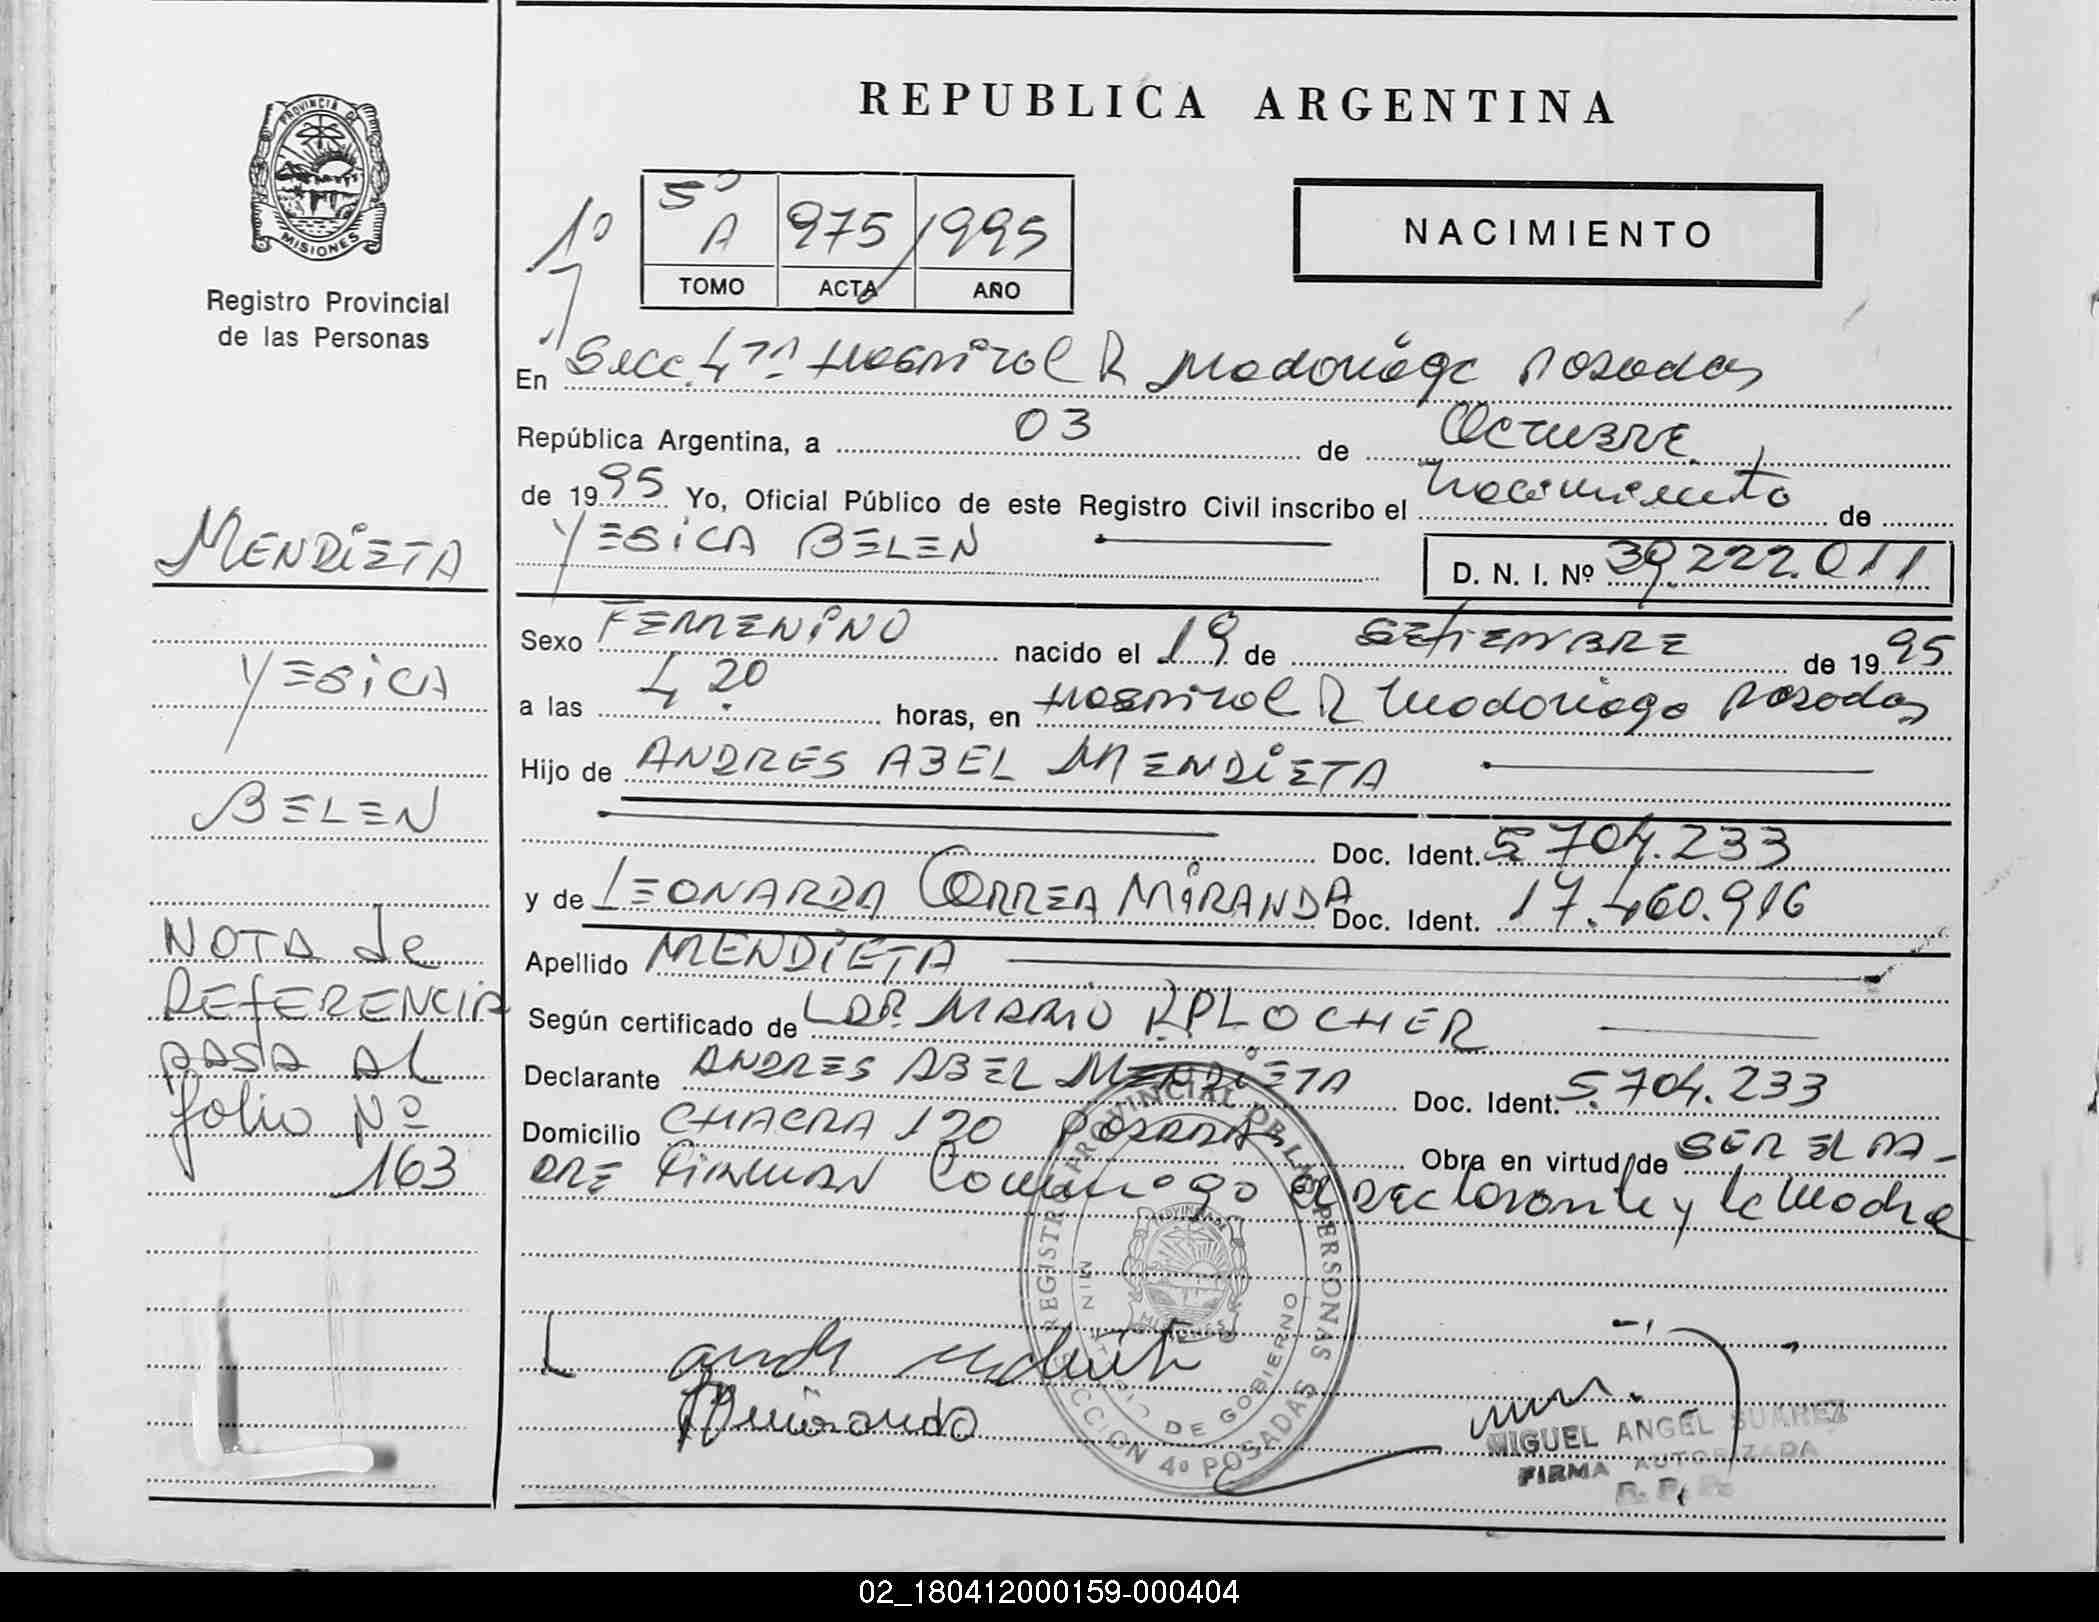 PROVINCIA DE
MISIONES
Registro Provincial
de las Personas
REPUBLICA ARGENTINA
1º
5º A 975/1995
TOMO ACTA AÑO
NACIMIENTO
En Secc. 4ta Hospital R Madariaga Posadas
República Argentina, a 03 de Octubre
de 1995 Yo, Oficial Público de este Registro Civil inscribo el nacimiento de
YESICA BELEN D. N. I. Nº 39.222.011
Sexo FEMENINO nacido el 19 de SETIEMBRE de 1995
a las 4 20 horas, en Hospital R Madariaga Posadas
Hijo de ANDRES ABEL MENDIETA
Doc. Ident. 5.704.233
y de LEONARDA CORREA MIRANDA Doc. Ident. 17.460.916
Apellido MENDIETA
Según certificado de DR. MARIO R PLOCHER
Declarante ANDRES ABEL MENDIETA Doc. Ident. 5.704.233
Domicilio CHACRA 120 POSADAS Obra en virtud de SER EL PA-
DRE FIRMAN Conmigo el Declarante y la Madre
MENDIETA
YESICA
BELEN
NOTA de
REFERENCIA
PASA AL
folio Nº
163
REGISTRO PROVINCIAL DE LAS PERSONAS
PROVINCIA DE
MISIONES
DE GOBIERNO
SECCION 4º POSADAS
Miranda
MIGUEL ANGEL SUAREZ
FIRMA AUTORIZADA
R. P. P.
02_180412000159-000404